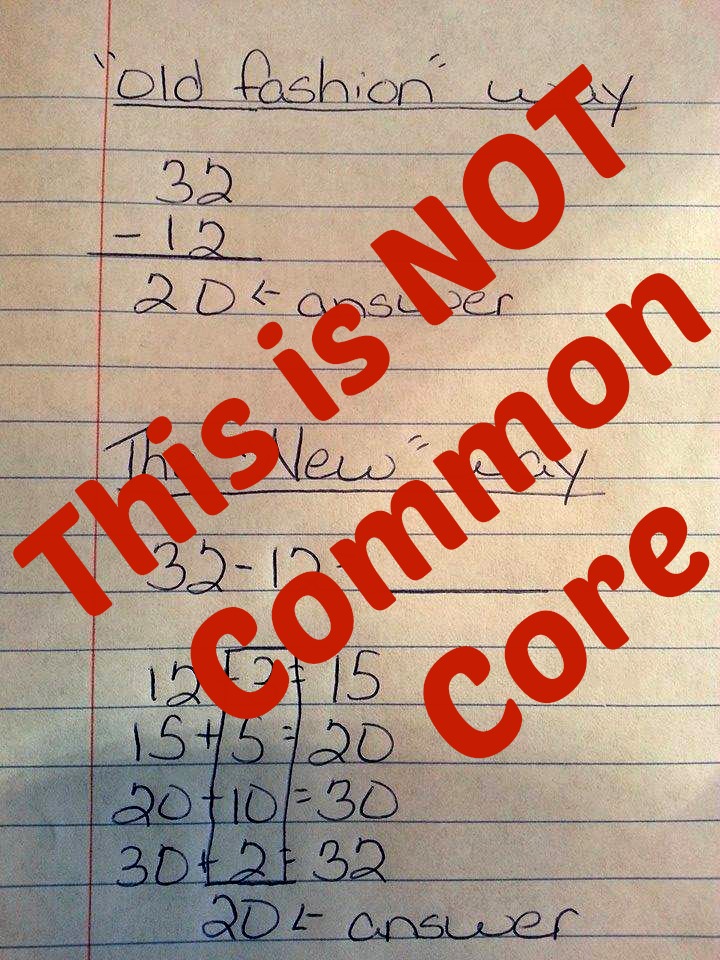 "old fashion" way
32
- 12
20 <- answer
The "New" way
32-12= ____
12+3=15
15+5=20
20+10=30
30+2=32
20 <- answer
This is NOT
Common
Core